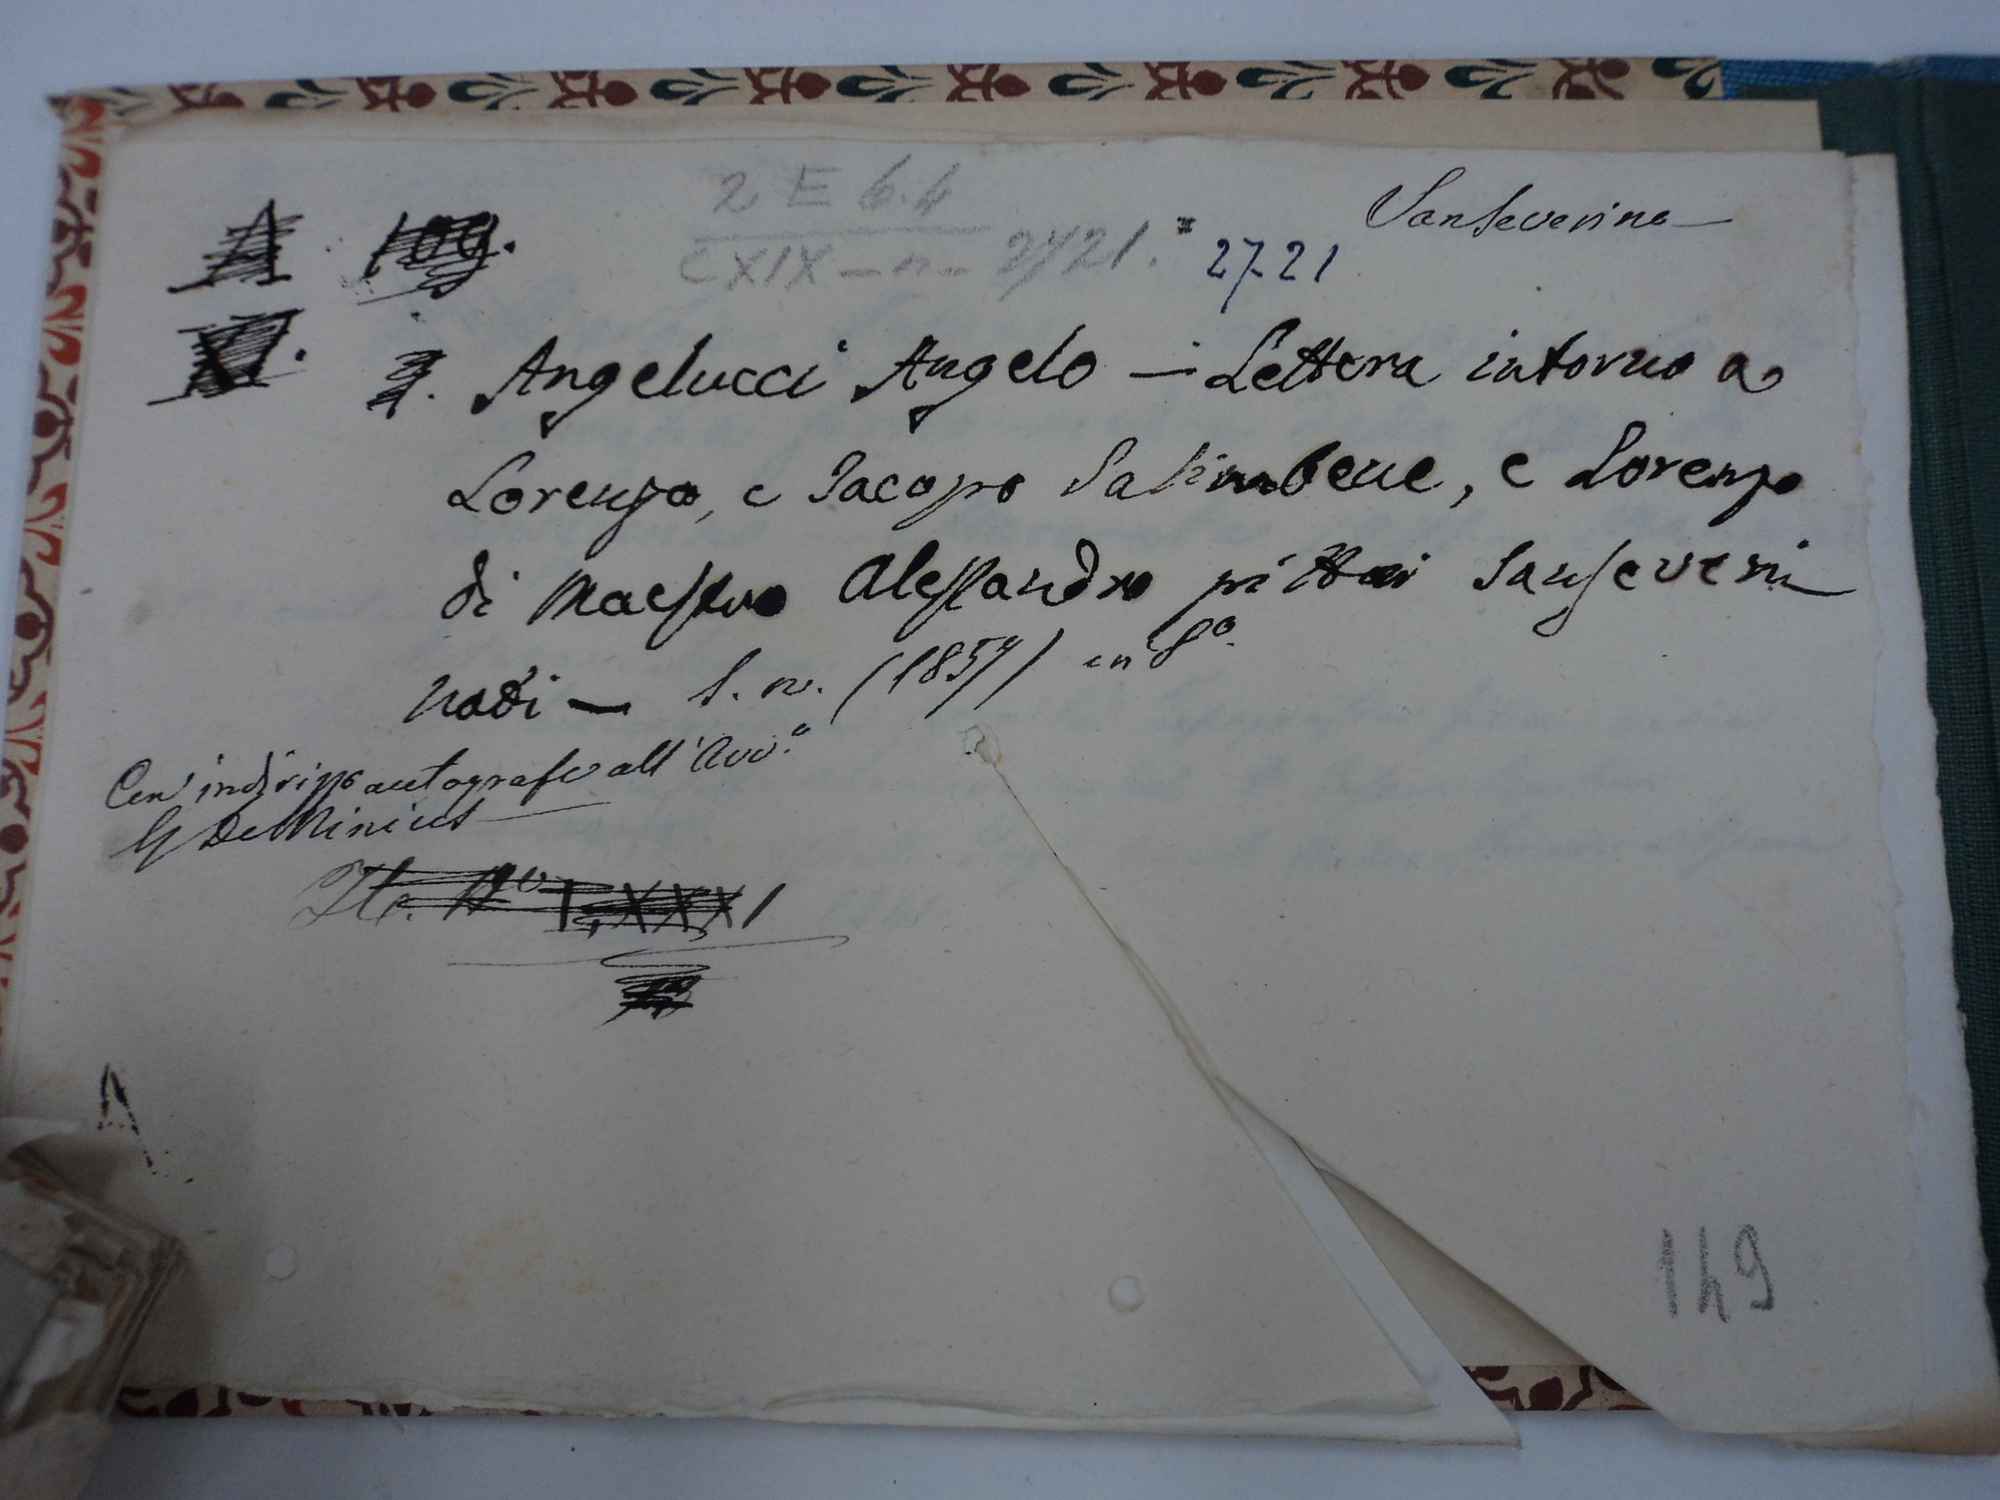 2 E 6.4
CXIX - n - 2721.
2721
Sanseverino
A 109.
XI.
Angelucci Angelo - Lettera intorno a
Lorenzo, e Jacopo Salimbene, e Lorenzo
di Maestro Alessandro pittori Sanseveri
nati - S. n. (1857) in 8º.
Con indirizzo autografo all'Avv.º
G DeMinicis
Nº LXXXI
149